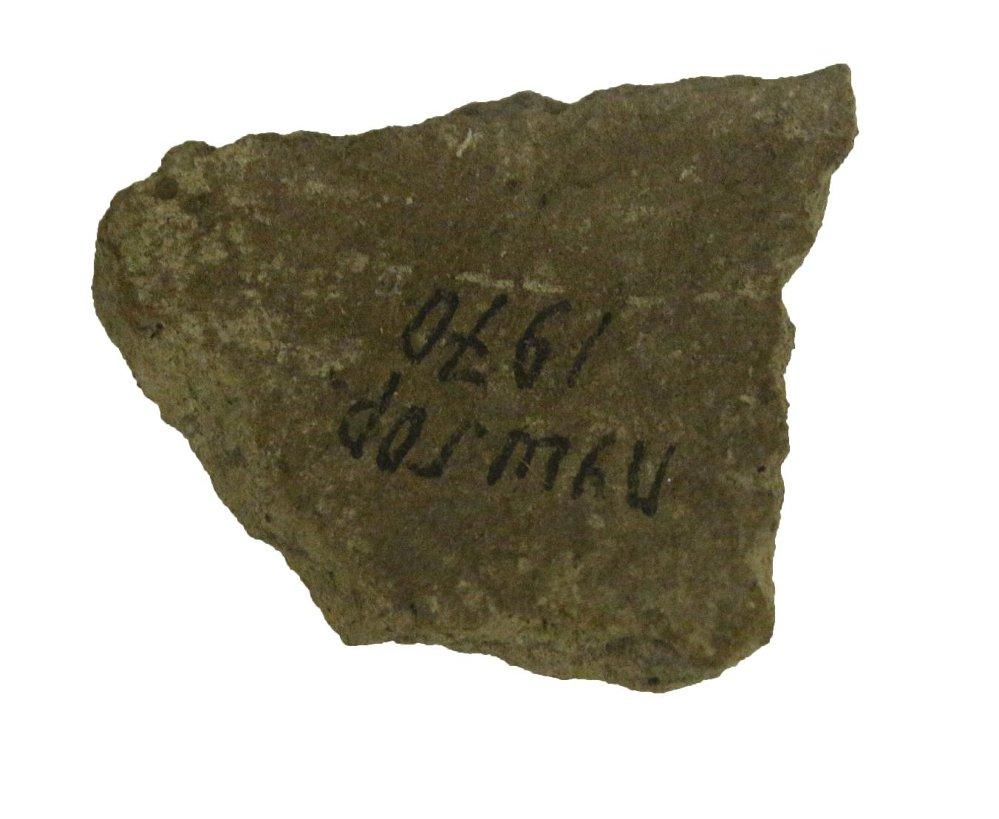 Пушгор.
1970